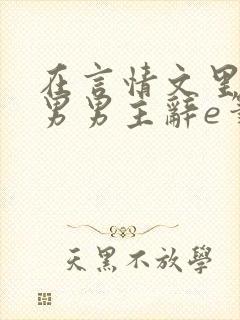 在言情文里
男男主辭e
天黑不放學